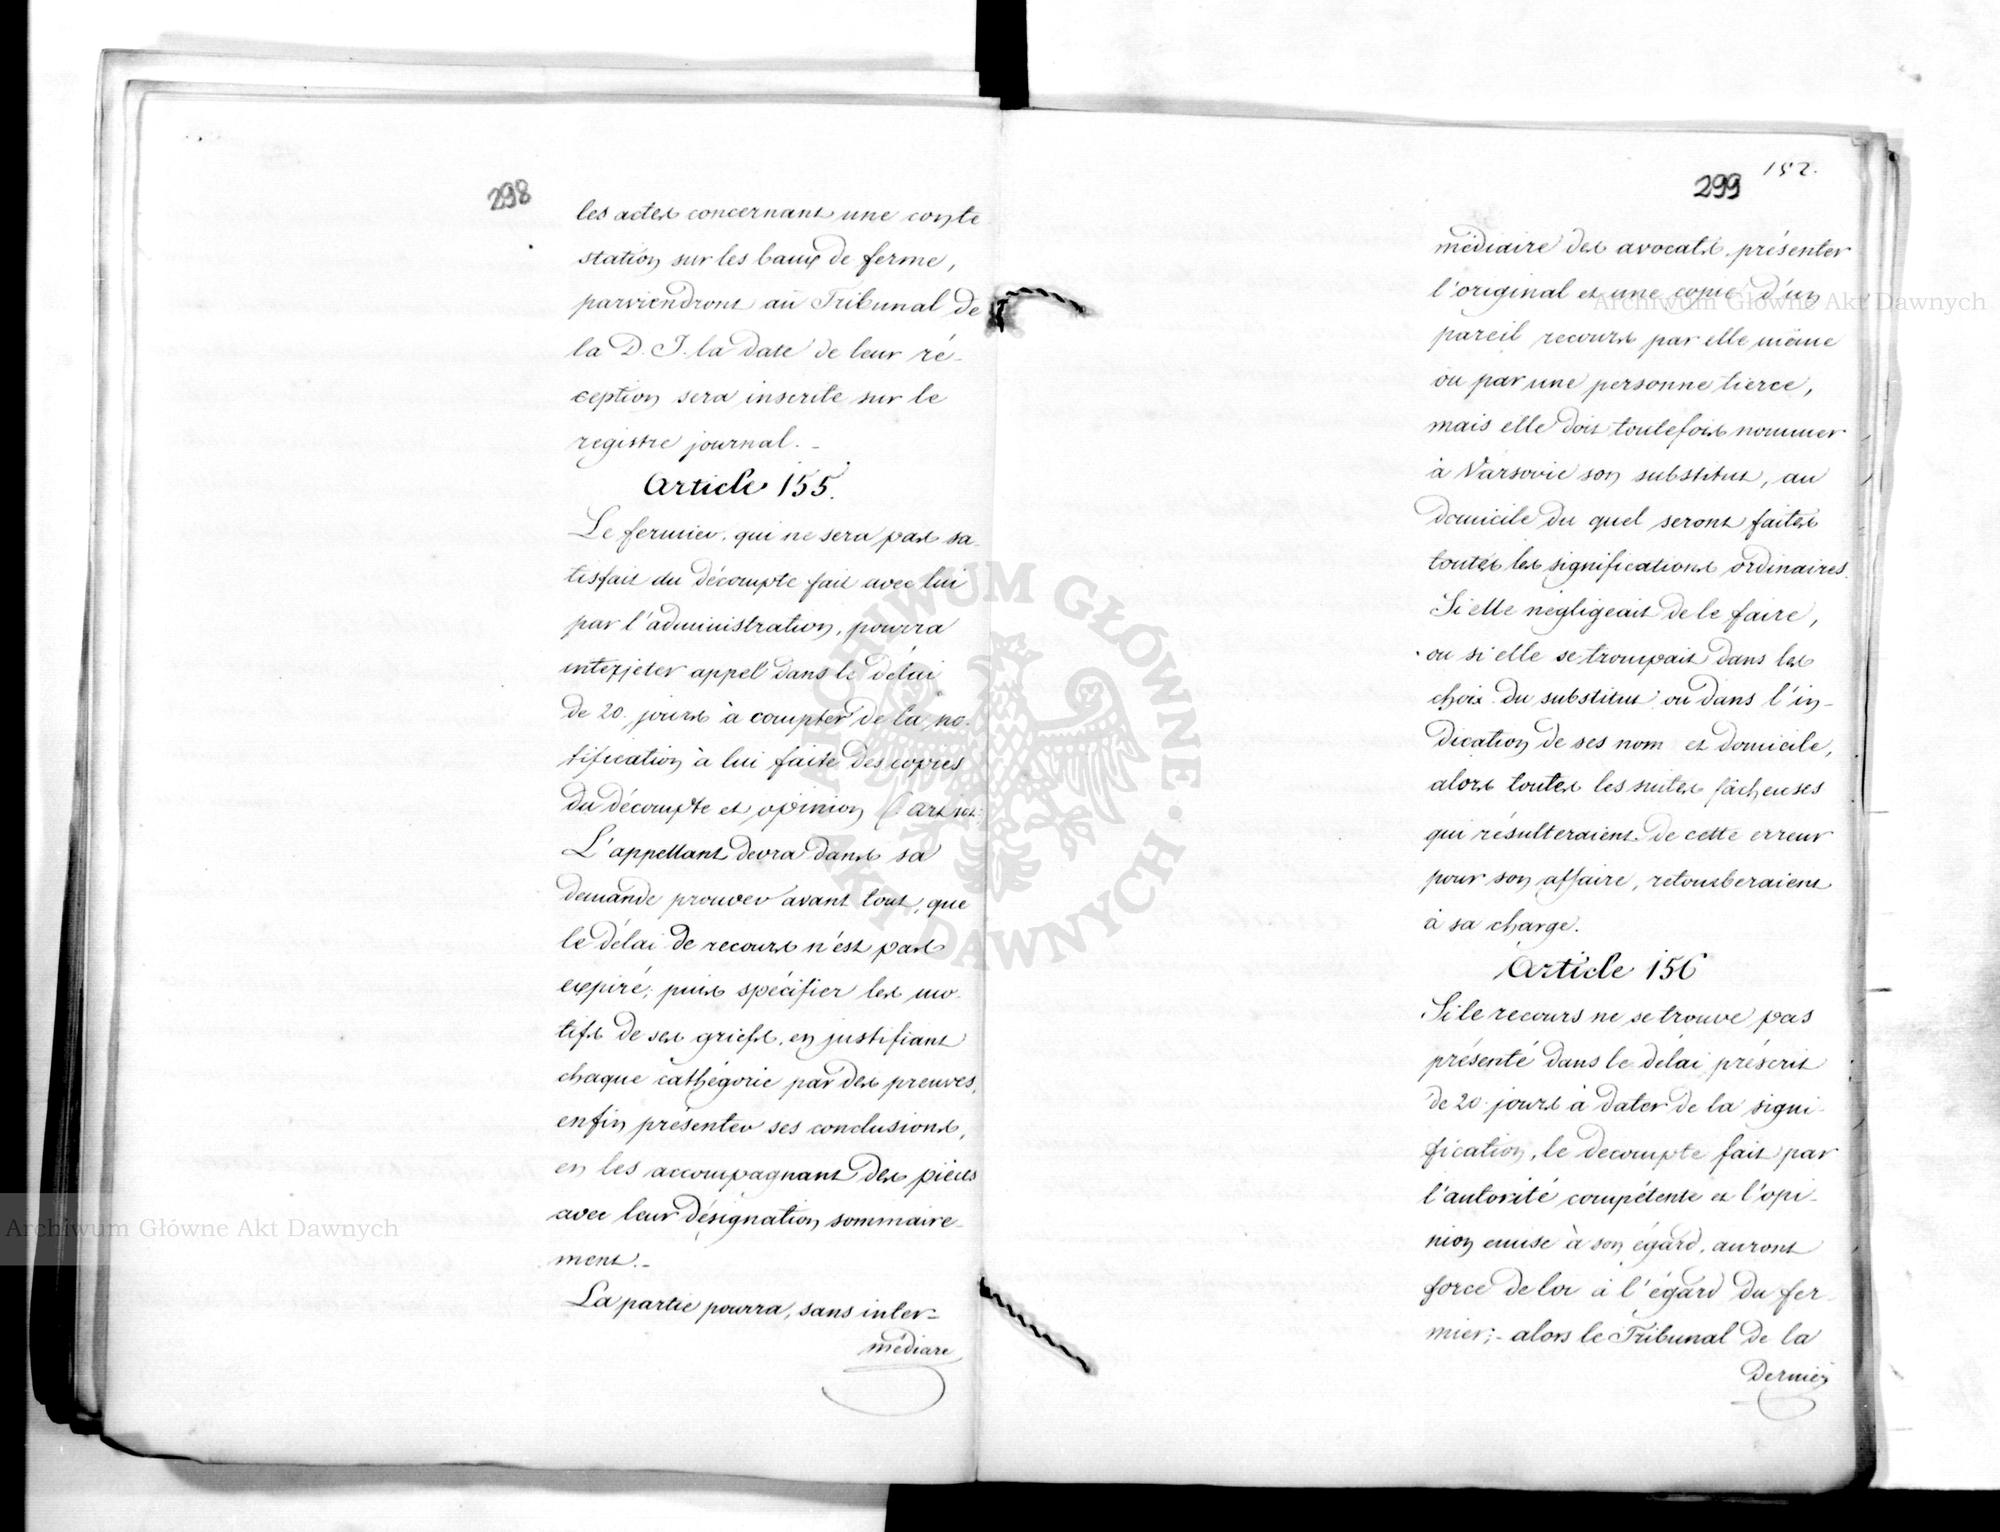 298
les actes concernant une conte
station sur les baux de ferme,
parviendront au Tribunal de
la D. I. la date de leur ré-
ception sera inscrite sur le
registre journal.-
Article 155.
Le fermier, qui ne sera pas sa-
tisfait du décompte fait avec lui
par l'administration, pourra
interjeter appel dans le délai
de 20. jours à compter de la no-
tification à lui faite des copies
du décompte et opinion (art
L'appellant devra dans sa
demande prouver avant tout, que
le délai de recours n'est pas
expiré; puis spécifier les mo-
tifs de ses griefs, en justifiant
chaque cathégorie par des preuves,
enfin présenter ses conclusions,
en les accompagnant des pièces
avec leur désignation sommaire-
ment.-
La partie pourra, sans inter-
médiare
152.
299
médiaire des avocats, présenter
l'original et une copie d'un
pareil recours par elle même
ou par une personne tierce,
mais elle doit toutefois nommer
à Varsovie son substitut, au
domicile du quel seront faites
toutes les significations ordinaires.
Si elle négligeait de le faire,
ou si elle se trompait dans les
choix du substitut ou dans l'in-
dication de ses nom et domicile,
alors toutes les suites fâcheuses
qui résulteraient de cette erreur
pour son affaire, retomberaient
à sa charge.
Article 156
Si le recours ne se trouve pas
présenté dans le délai préscrit
de 20. jours à dater de la signi-
fication, le decompte fait par
l'autorité compétente et l'opi-
nion emise à son égard, auront
force de loi à l'égard du fer-
mier;- alors le Tribunal de la
Derniè
Archiwum Główne Akt Dawnych
Archiwum Główne Akt Dawnych
ARCHIWUM GŁÓWNE · AKT DAWNYCH ·